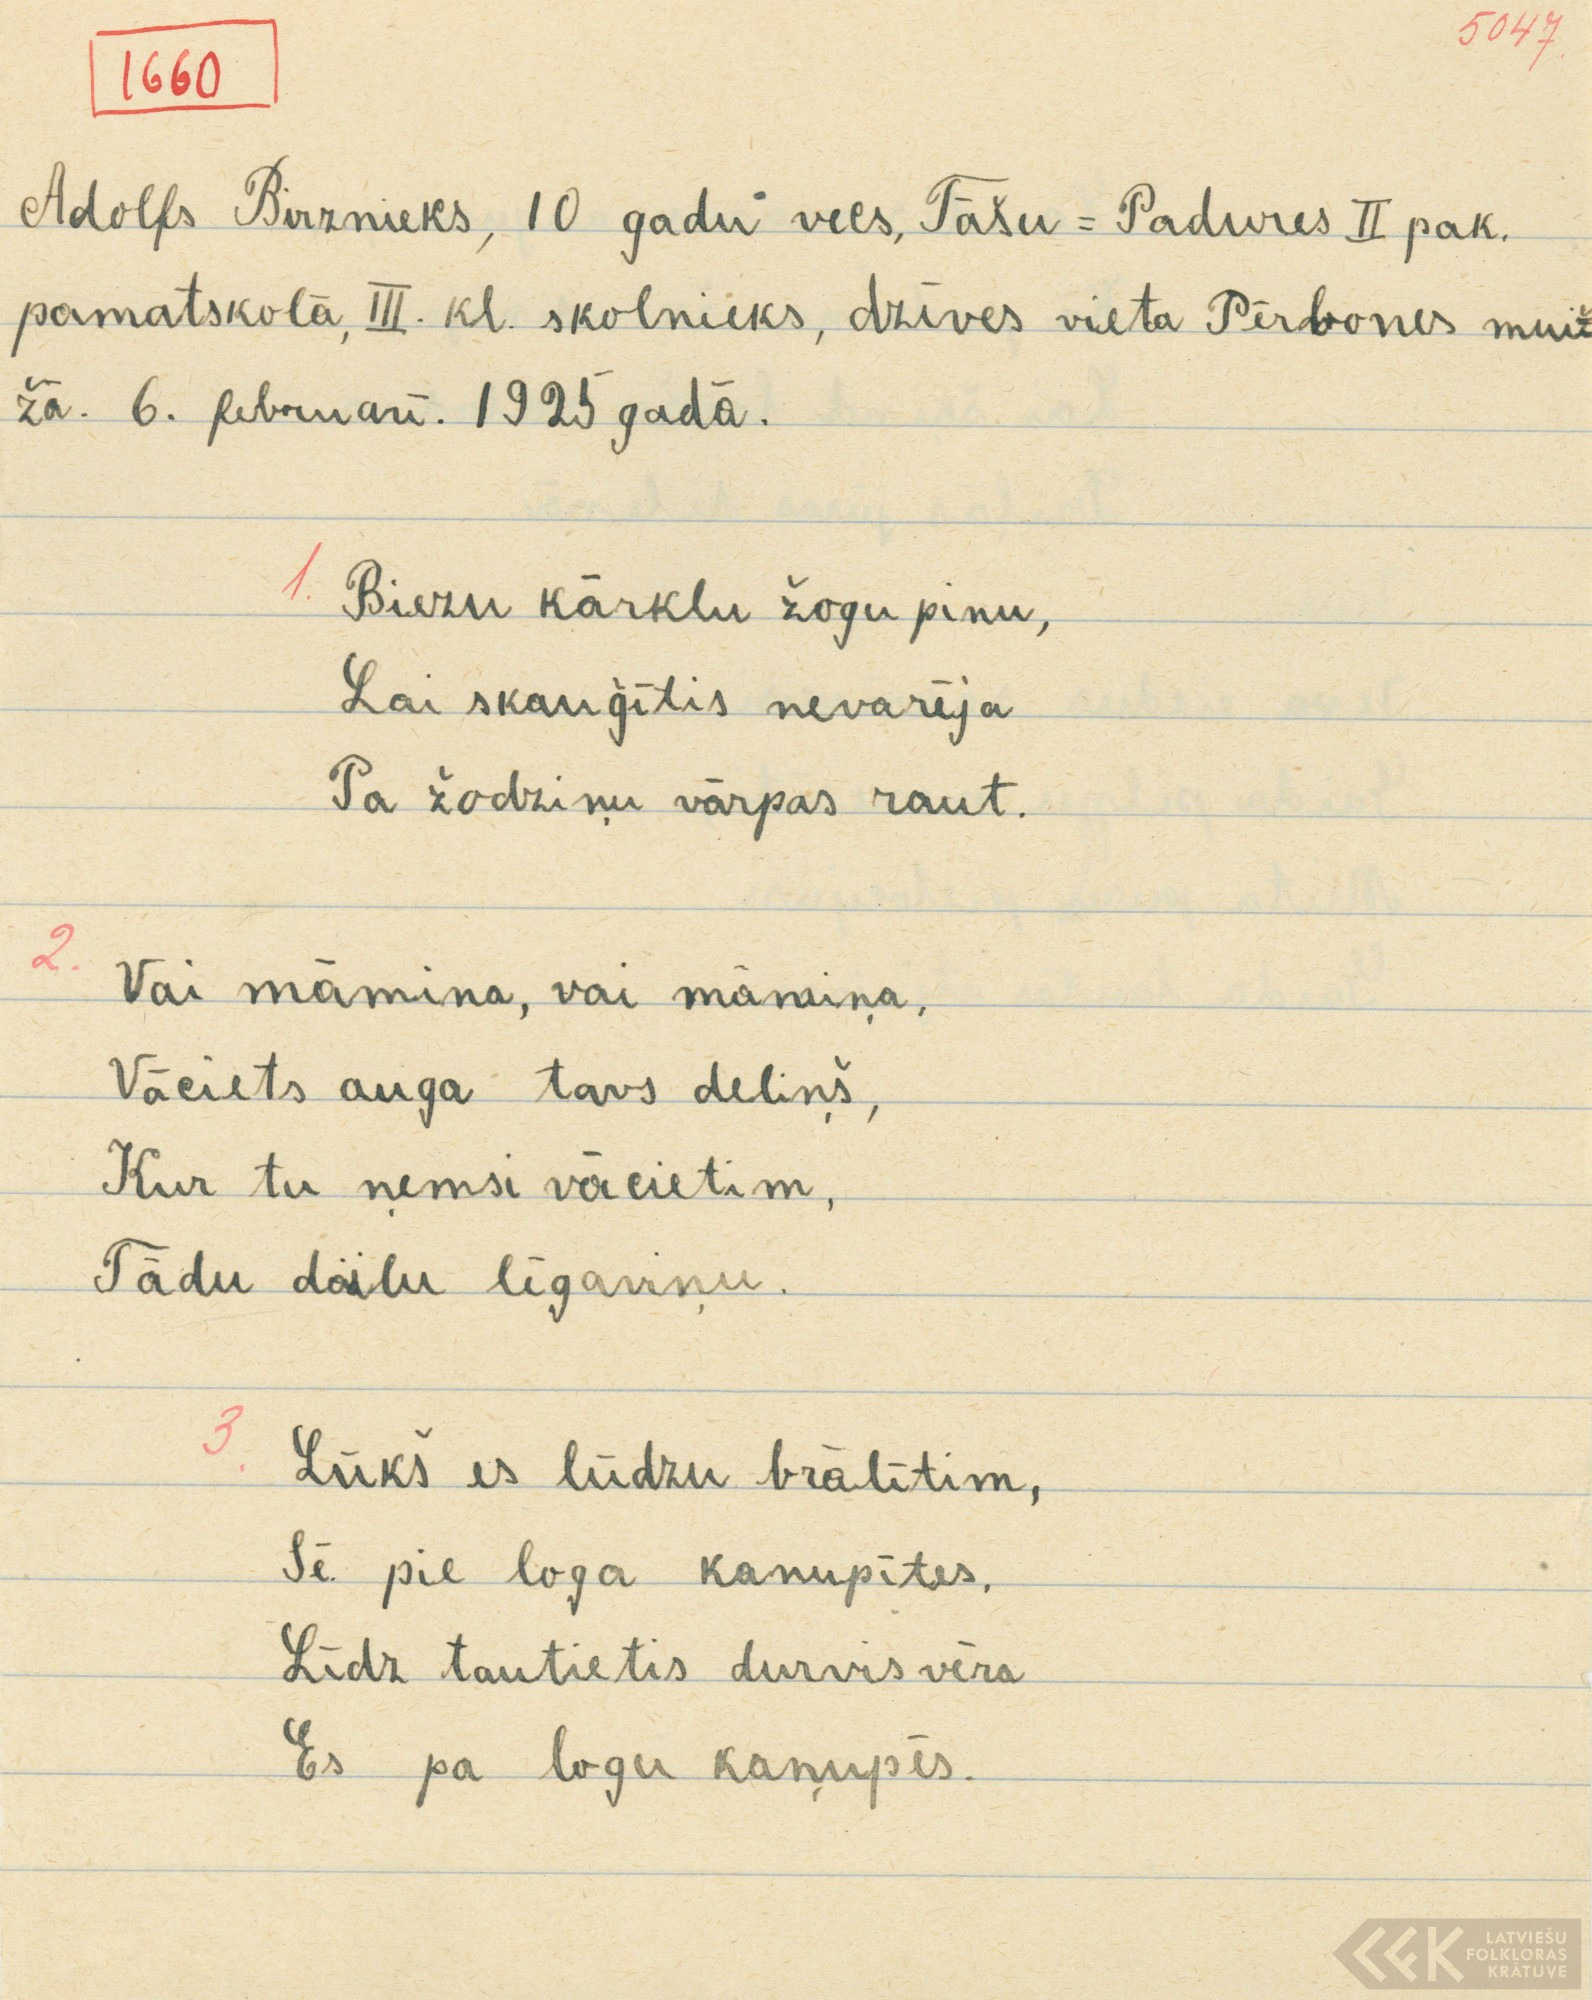 1660
5047.
Adolfs Birznieks, 10 gadu vecs, Tāšu = Padures II pak.
pamatskolā, III. kl. skolnieks, dzīves vieta Pērbones muiž
žā. 6. februarī. 1925 gadā.
1. Biezu kārklu žogu pinu,
Lai skauģītis nevarēja
Pa žodziņu vārpas raut.
2. Vai māmina, vai māmiņa,
Vāciets auga tavs deliņš,
Kur tu ņemsi vācietim,
Tādu dailu līgaviņu.
3. Lūkš es lūdzu brālītim,
Sē pie loga kanupītes.
Līdz tautietis durvis vēra
Es pa logu kaņupēs.
LATVIEŠU
FOLKLORAS
KRĀTUVE